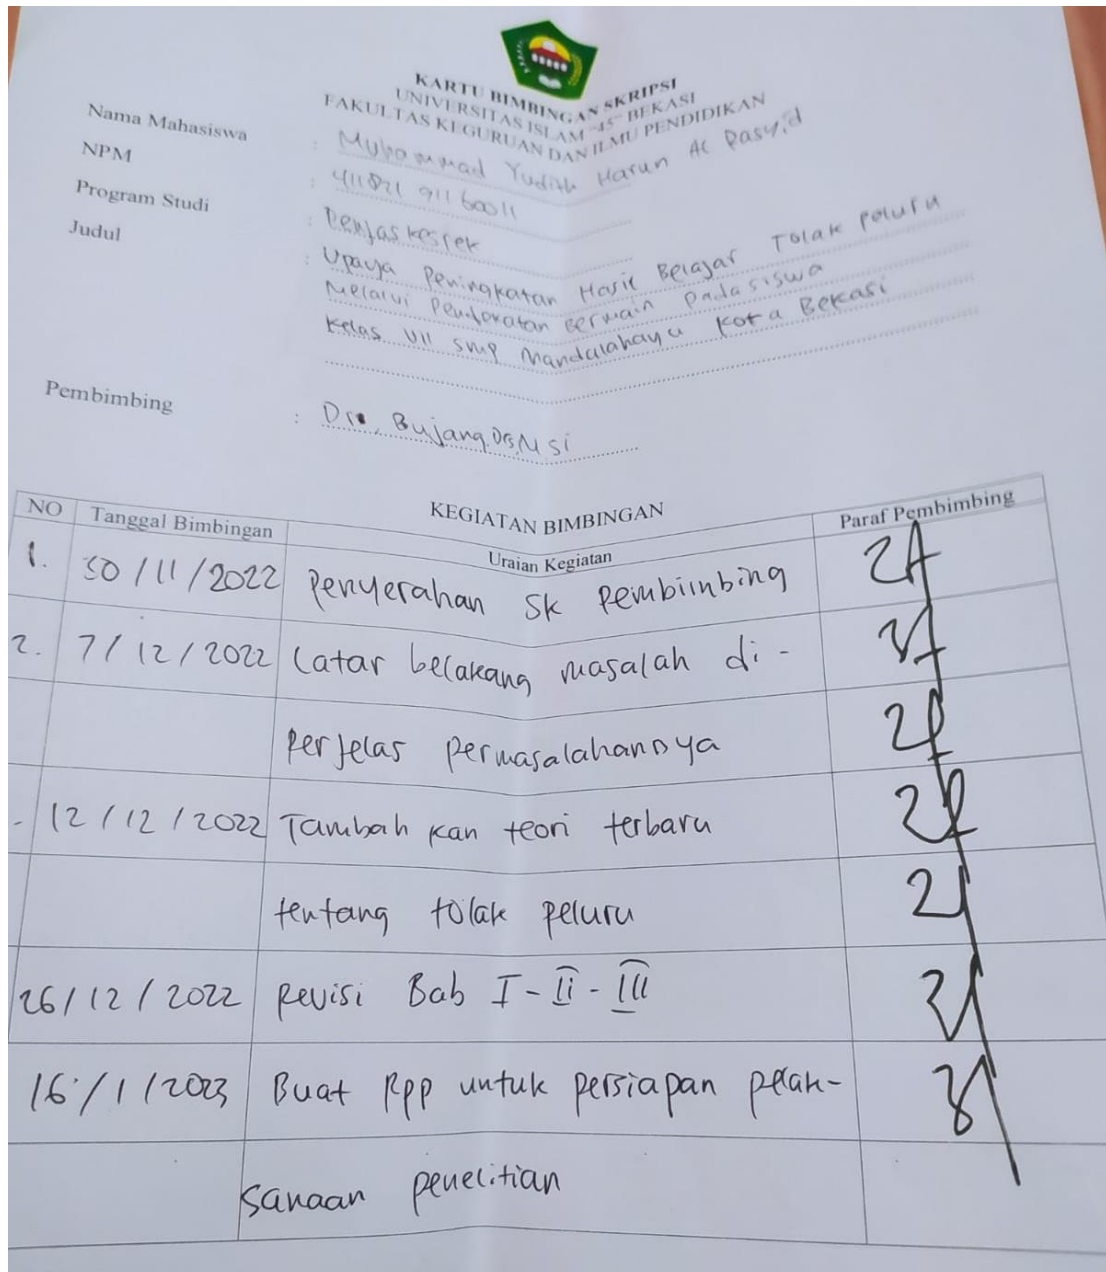 KARTU BIMBINGAN SKRIPSI
UNIVERSITAS ISLAM "45" BEKASI
FAKULTAS KEGURUAN DAN ILMU PENDIDIKAN
Nama Mahasiswa : Muhammad Yudith Harun Al Rasyid
NPM :
Program Studi : Penjaskesrek
Judul : Upaya Peningkatan Hasil Belajar Tolak peluru
Melalui Pendekatan Bermain Pada siswa
Kelas VII SMP Mandalahayu Kota Bekasi
Pembimbing : Bujang, M si
KEGIATAN BIMBINGAN
NO Tanggal Bimbingan Uraian Kegiatan Paraf Pembimbing
1. 30/11/2022 Penyerahan SK Pembiimbing
2. 7/12/2022 Latar belakang masalah di-
perjelas permasalahannya
12/12/2022 Tambah kan teori terbaru
tentang tolak peluru
26/12/2022 Revisi Bab I-II-III
16/1/2023 Buat Rpp untuk persiapan pelak-
sanaan penelitian